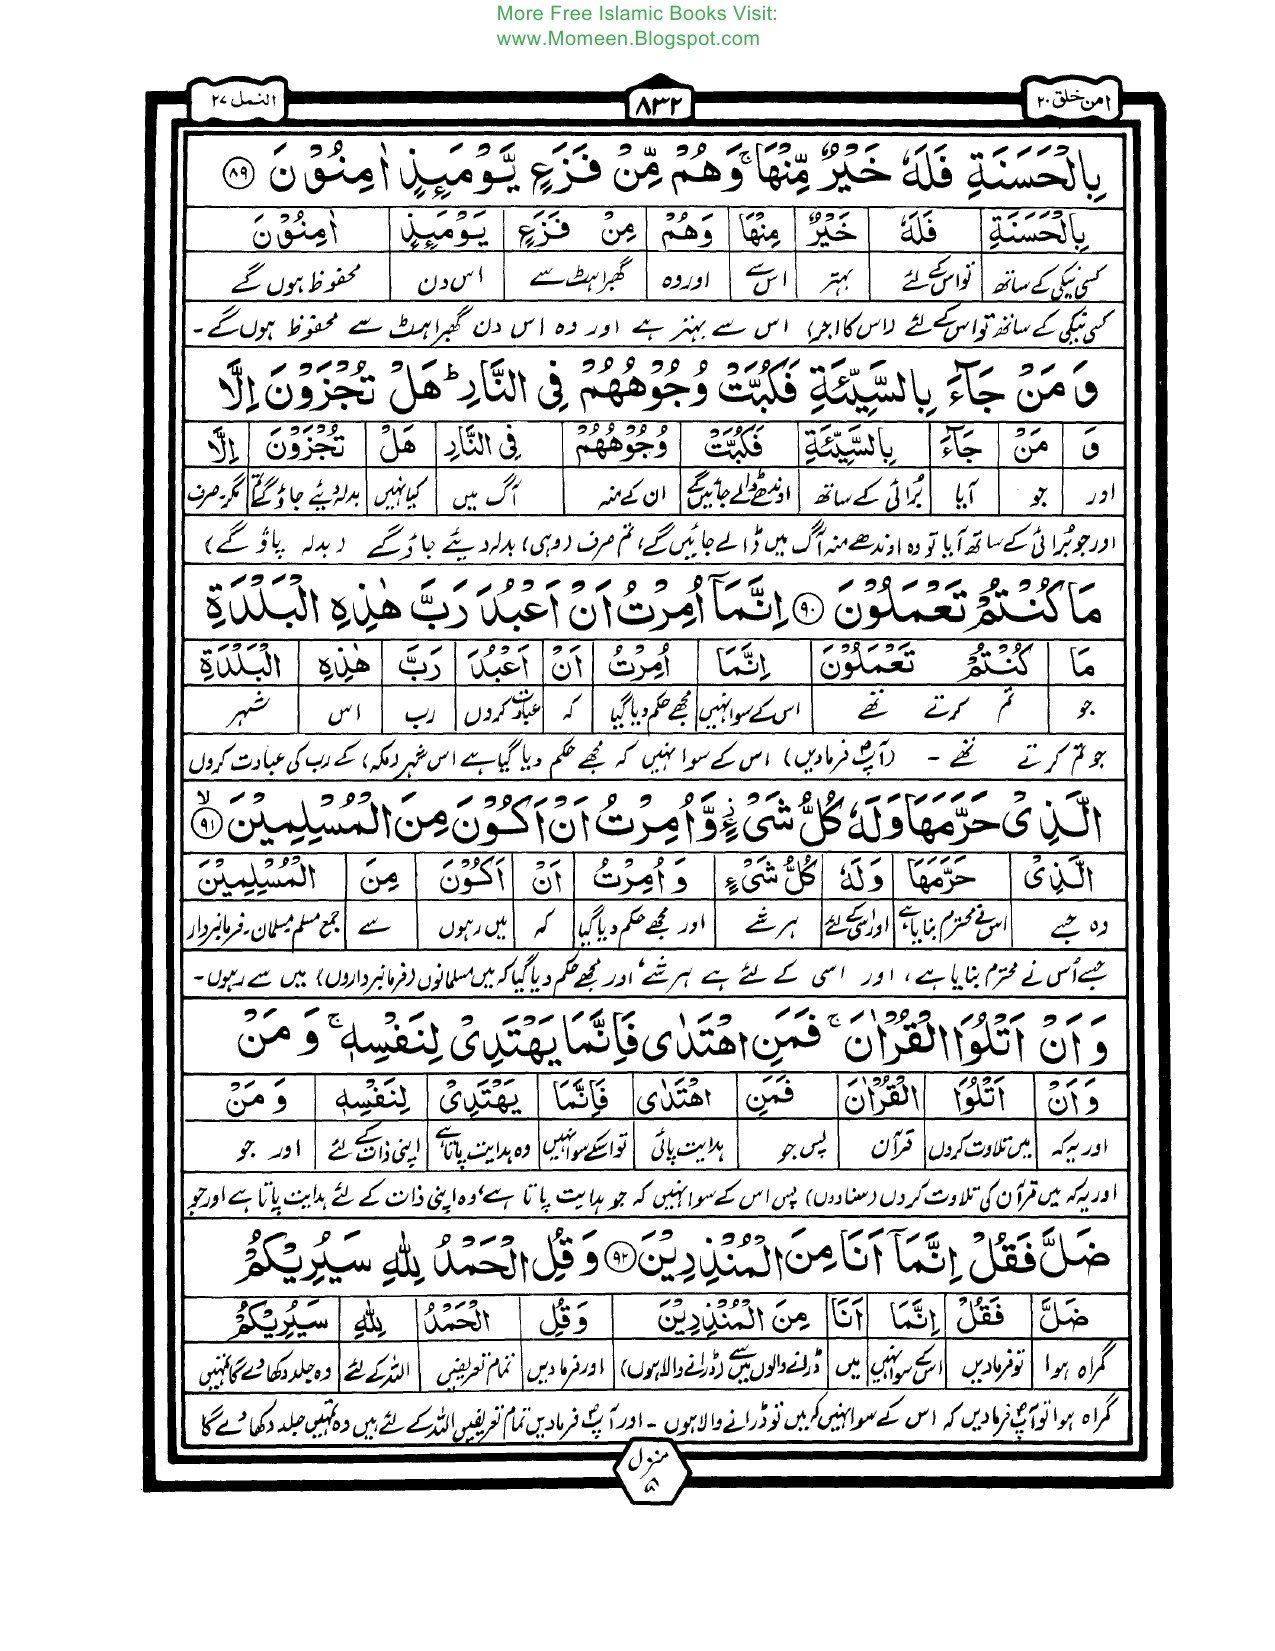 More Free Islamic Books Visit:
www.Momeen.Blogspot.com
امن خلق ۲۰ ۸۳۲ النمل ۲۷
بِالْحَسَنَةِ فَلَهٗ خَيْرٌ مِّنْهَا ۚ وَهُمْ مِّنْ فَزَعٍ يَّوْمَئِذٍ اٰمِنُوْنَ ﴿۸۹﴾
بِالْحَسَنَةِ فَلَهٗ خَيْرٌ مِنْهَا وَهُمْ مِنْ فَزَعٍ يَوْمَئِذٍ اٰمِنُوْنَ
کسی نیکی کے ساتھ تو اس کے لئے بہتر اس سے اور وہ گھبراہٹ سے اس دن محفوظ ہوں گے
کسی نیکی کے ساتھ تو اس کے لئے (اس کا اجر) اس سے بہتر ہے اور وہ اس دن گھبراہٹ سے محفوظ ہوں گے۔
وَ مَنْ جَآءَ بِالسَّيِّئَةِ فَكُبَّتْ وُجُوْهُهُمْ فِى النَّارِ ؕ هَلْ تُجْزَوْنَ اِلَّا
وَ مَنْ جَآءَ بِالسَّيِّئَةِ فَكُبَّتْ وُجُوْهُهُمْ فِى النَّارِ هَلْ تُجْزَوْنَ اِلَّا
اور جو آیا بُرائی کے ساتھ اوندھے ڈالے جائیں گے ان کے منہ آگ میں کیا نہیں بدلہ دیئے جاؤ گے تم مگر۔صرف
اور جو بُرائی کے ساتھ آیا تو وہ اوندھے منہ آگ میں ڈالے جائیں گے، تم صرف (وہی) بدلہ دیئے جاؤ گے (بدلہ پاؤ گے)
مَا كُنْتُمْ تَعْمَلُوْنَ ﴿۹۰﴾ اِنَّمَآ اُمِرْتُ اَنْ اَعْبُدَ رَبَّ هٰذِهِ الْبَلْدَةِ
مَا كُنْتُمْ تَعْمَلُوْنَ اِنَّمَا اُمِرْتُ اَنْ اَعْبُدَ رَبَّ هٰذِهِ الْبَلْدَةِ
جو تم کرتے تھے اس کے سوا نہیں مجھے حکم دیا گیا کہ عبادت کروں رب اس شہر
جو تم کرتے تھے ۔ (آپؐ فرمادیں) اس کے سوا نہیں کہ مجھے حکم دیا گیا ہے اس شہر (مکہ) کے رب کی عبادت کروں
الَّذِىْ حَرَّمَهَا وَلَهٗ كُلُّ شَىْءٍ وَّ اُمِرْتُ اَنْ اَكُوْنَ مِنَ الْمُسْلِمِيْنَ ﴿۹۱﴾ لا
الَّذِىْ حَرَّمَهَا وَلَهٗ كُلُّ شَىْءٍ وَ اُمِرْتُ اَنْ اَكُوْنَ مِنَ الْمُسْلِمِيْنَ
وہ جسے اس نے محترم بنایا ہے اور اسی کے لئے ہر شے اور مجھے حکم دیا گیا کہ میں رہوں سے جمع مسلم مسلمان۔فرمانبردار
جسے اُس نے محترم بنایا ہے، اور اسی کے لئے ہے ہر شے، اور مجھے حکم دیا گیا کہ میں مسلمانوں (فرمانبرداروں) میں سے رہوں۔
وَ اَنْ اَتْلُوَا الْقُرْاٰنَ ۚ فَمَنِ اهْتَدٰى فَاِنَّمَا يَهْتَدِىْ لِنَفْسِهٖ ۚ وَ مَنْ
وَ اَنْ اَتْلُوَا الْقُرْاٰنَ فَمَنِ اهْتَدٰى فَاِنَّمَا يَهْتَدِىْ لِنَفْسِهٖ وَ مَنْ
اور یہ کہ میں تلاوت کروں قرآن پس جو ہدایت پائی تو اسکے سوا نہیں وہ ہدایت پاتا ہے اپنی ذات کے لئے اور جو
اور یہ کہ میں قرآن کی تلاوت کروں (سنادوں) پس اس کے سوا نہیں کہ جو ہدایت پاتا ہے، وہ اپنی ذات کے لئے ہدایت پاتا ہے اور جو
ضَلَّ فَقُلْ اِنَّمَآ اَنَا مِنَ الْمُنْذِرِيْنَ ﴿۹۲﴾ وَ قُلِ الْحَمْدُ لِلّٰهِ سَيُرِيْكُمْ
ضَلَّ فَقُلْ اِنَّمَا اَنَا مِنَ الْمُنْذِرِيْنَ وَ قُلِ الْحَمْدُ لِلّٰهِ سَيُرِيْكُمْ
گمراہ ہوا تو فرمادیں اسکے سوا نہیں میں ڈرانے والوں میں سے (ڈرانے والا ہوں) اور فرمادیں تمام تعریفیں اللہ کے لئے وہ جلد دکھادے گا تمہیں
گمراہ ہوا تو آپؐ فرمادیں کہ اس کے سوا نہیں کہ میں تو ڈرانے والا ہوں ۔ اور آپؐ فرمادیں تمام تعریفیں اللہ کے لئے ہیں وہ تمہیں جلد دکھادے گا
منزل ۵